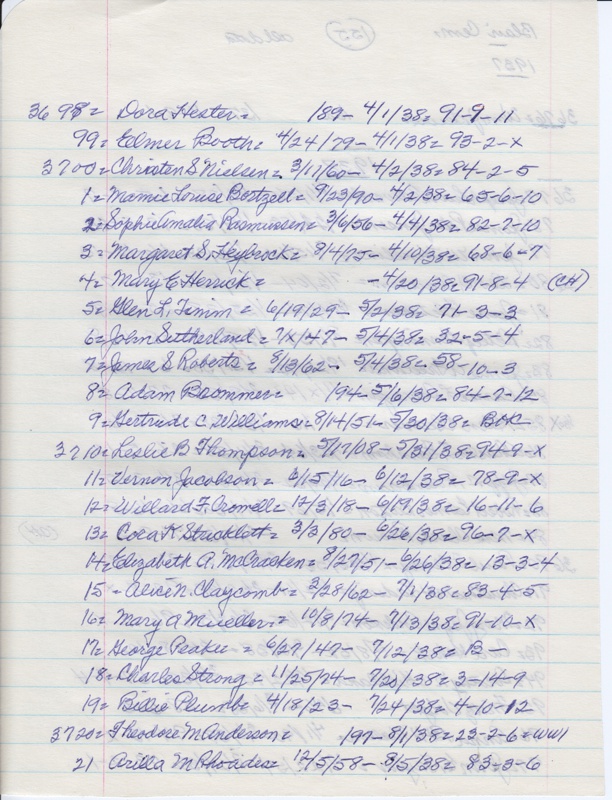 3698= Dora Hester= 189- 4/1/38= 91-9-11
99= Elmer Booth= 4/24/79- 4/1/38= 93-2-X
3700= Christen S Nielsen= 3/17/60- 4/2/38= 84-2-5
1= Mamie Louise Bertzell= 9/23/90- 4/2/38= 65-6-10
2= Sophie Amalia Rasmussen= 3/6/56- 4/4/38= 82-7-10
3= Margaret S. Heybrock= 8/4/75- 4/10/38= 68-6-7
4= Mary E Herrick= -4/20/38= 91-8-4 (CH)
5= Glen L. Timm= 6/19/29- 5/2/38= 71-3-3
6= John Sutherland= 7/X/47- 5/4/38= 32-5-4
7= James S Roberts= 8/13/62- 5/4/38= 58-10-3
8= Adam Boommer= 194- 5/6/38= 84-7-12
9= Gertrude C Williams= 8/14/51- 5/30/38=
3710= Leslie B Thompson= 5/17/08- 5/31/38= 94-9-X
11= Vernon Jacobson= 6/15/16- 6/12/38= 78-9-X
12= Willard F. Cromell= 12/3/18- 6/19/38= 16-11-6
13= Cora K Stricklett= 3/3/80- 6/26/38= 96-7-X
14= Elizabeth A. McCracken= 8/27/51- 6/26/38= 13-3-4
15= Alice N. Claycomb= 2/28/62- 7/1/38= 83-4-5
16= Mary A Mueller= 10/8/74- 7/13/38= 91-10-X
17= George Peake= 6/27/47- 7/12/38= B-
18= Charles Strong= 11/25/74- 7/20/38= 3-14-9
19= Billie Plumb= 4/18/23- 7/24/38= 4-10-12
3720= Theodore M Anderson= 197- 8/1/38= 23-2-6= WW1
21 Arilla M Rhoades= 12/5/58- 8/5/38= 83-3-6